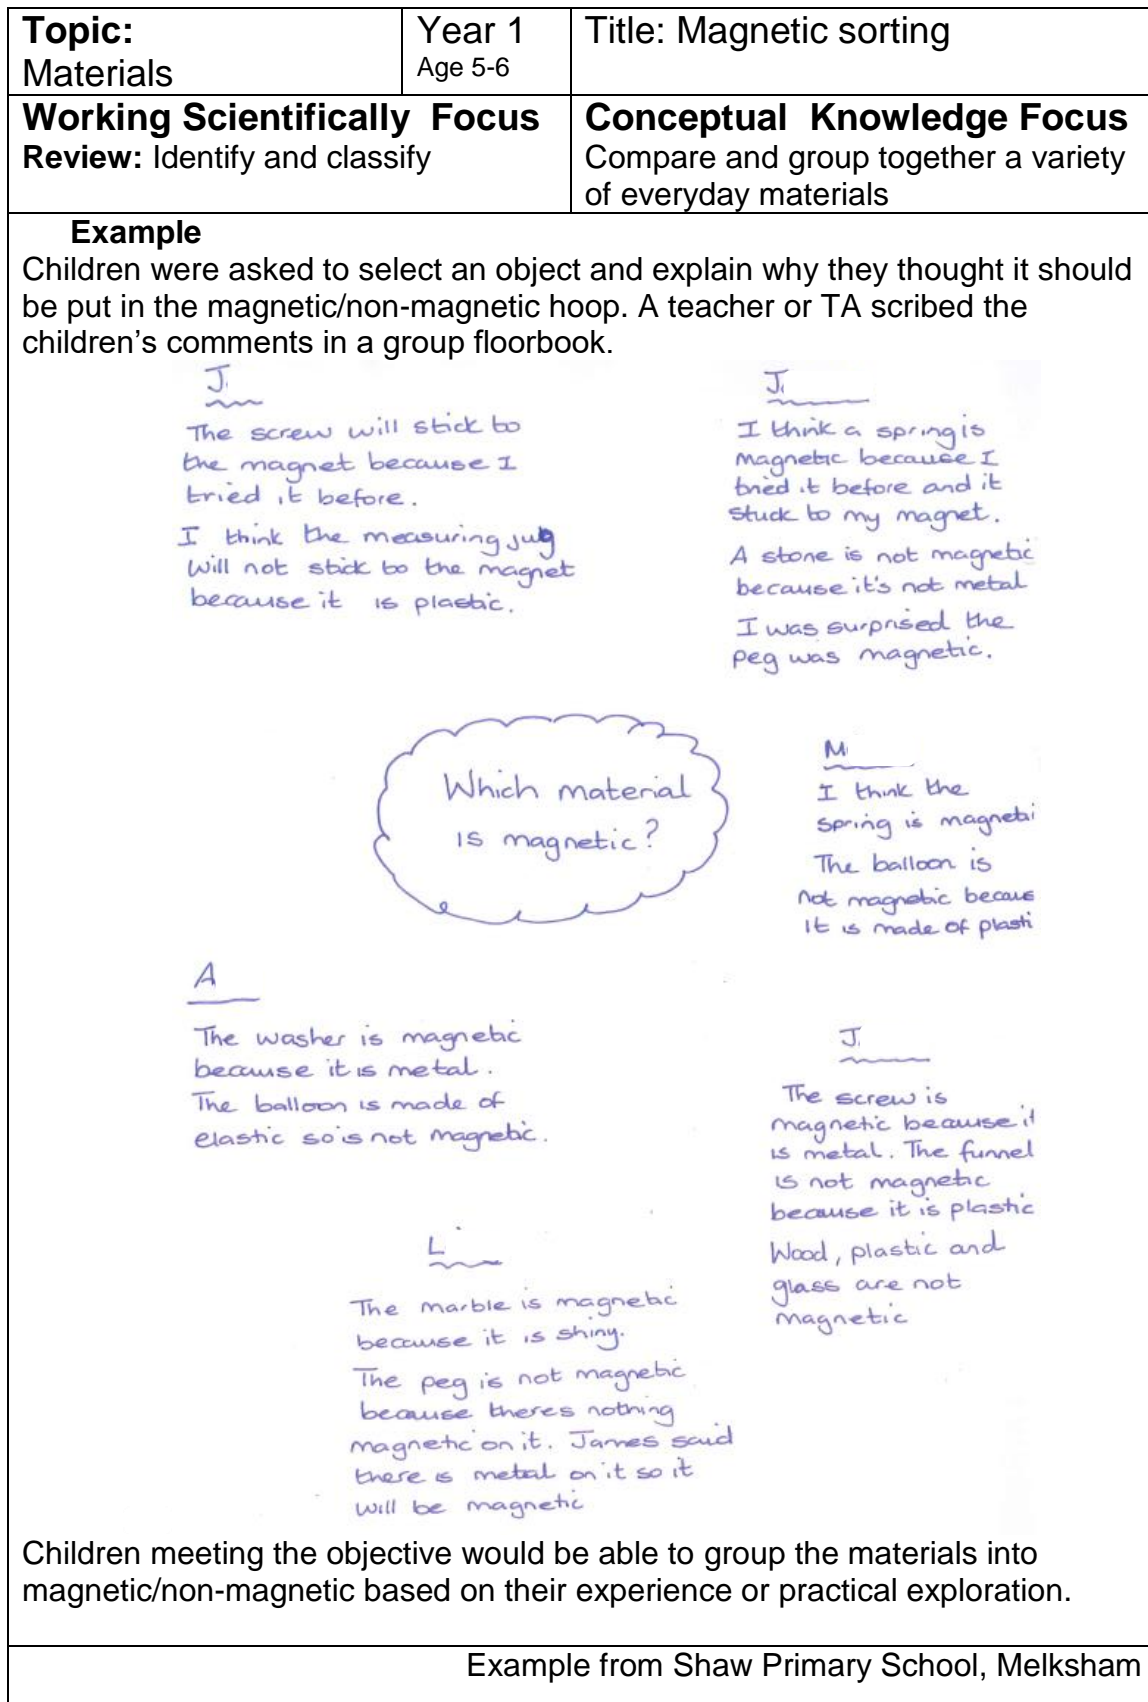 Topic:
Materials
Year 1
Age 5-6
Title: Magnetic sorting
Working Scientifically Focus
Review: Identify and classify
Conceptual Knowledge Focus
Compare and group together a variety
of everyday materials
Example
Children were asked to select an object and explain why they thought it should
be put in the magnetic/non-magnetic hoop. A teacher or TA scribed the
children's comments in a group floorbook.
J.
The screw will stick to
the magnet because I
tried it before.
I think the measuring jug
will not stick to the magnet
because it is plastic.
J.
I think a spring is
magnetic because I
tried it before and it
stuck to my magnet.
A stone is not magnetic
because it's not metal
I was surprised the
peg was magnetic.
Which material
is magnetic?
M
I think the
spring is magneti
The balloon is
not magnetic becaus
it is made of plasti
A
The washer is magnetic
because it is metal.
The balloon is made of
elastic so is not magnetic.
J.
The screw is
magnetic because it
is metal. The funnel
is not magnetic
because it is plastic
Wood, plastic and
glass are not
magnetic
L
The marble is magnetic
because it is shiny.
The peg is not magnetic
because theres nothing
magnetic on it. James said
there is metal on it so it
will be magnetic
Children meeting the objective would be able to group the materials into
magnetic/non-magnetic based on their experience or practical exploration.
Example from Shaw Primary School, Melksham